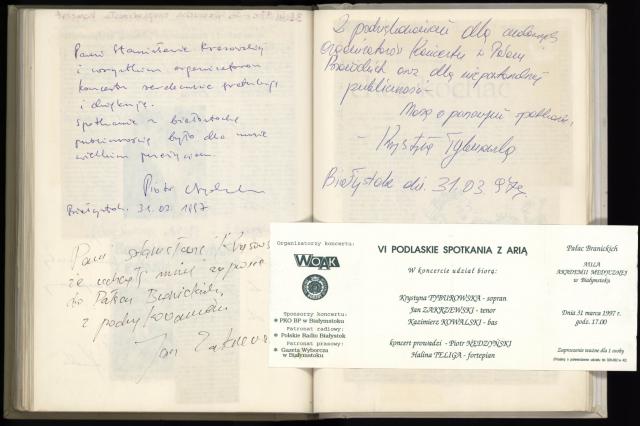 Pani Stanisławie Krasowskiej
i wszystkim organizatorom
koncertu serdecznie gratuluję
i dziękuję.
Spotkanie z białostocką
publicznością było dla mnie
wielkim przeżyciem.
Piotr
Białystok. 31.03.1997
Pani Stanisławie
za
do Pałacu Branickich,
z podziękowaniem
Jan
Z podziękowaniem dla
organizatorów Koncertu w Pałacu
Branickich oraz dla
publiczności -
Krystyna Tyburowska
Białystok dn. 31.03.97r.
Organizatorzy koncertu:
WOAK
Sponsorzy koncertu:
PKO BP w Białymstoku
Patronat radiowy:
Polskie Radio Białystok
Patronat prasowy:
Gazeta Wyborcza
w Białymstoku
VI PODLASKIE SPOTKANIA Z ARIĄ
W koncercie udział biorą:
Krystyna TYBUROWSKA - sopran
Jan ZAKRZEWSKI - tenor
Kazimierz KOWALSKI - bas
koncert prowadzi - Piotr NĘDZYŃSKI
Halina TELIGA - fortepian
Pałac Branickich
AULA
AKADEMII MEDYCZNEJ
w Białymstoku
Dnia 31 marca 1997 r.
godz. 17.00
Zaproszenie ważne dla 1 osoby